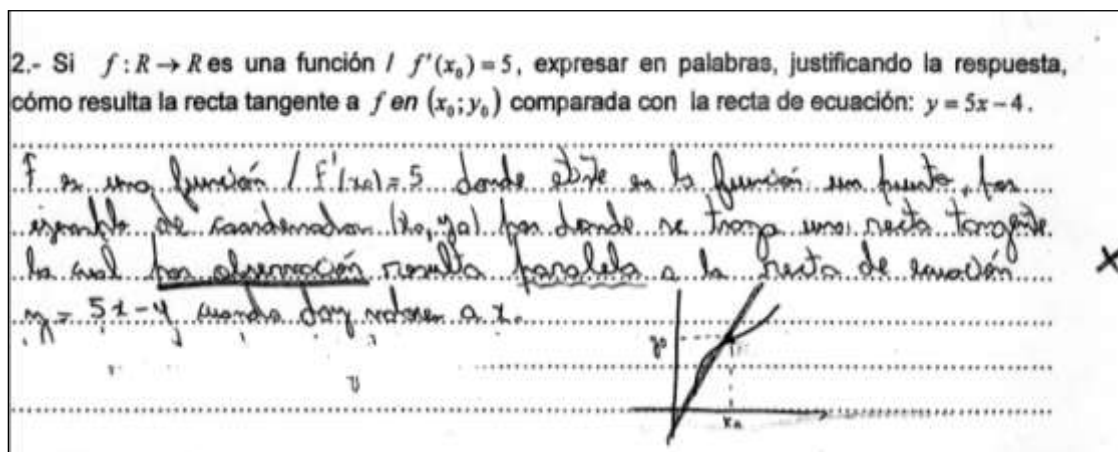 2.- Si f : R → R es una función / f'(x₀) = 5, expresar en palabras, justificando la respuesta,
cómo resulta la recta tangente a f en (x₀; y₀) comparada con la recta de ecuación: y = 5x – 4.
f es una función / f'(x₀) = 5 donde existe en la función un punto, por
ejemplo de coordenadas (x₀, y₀) por donde se traza una recta tangente
la cual por observación resulta paralela a la recta de ecuación
y = 5x - 4 cuando doy valores a x.
y₀
x₀